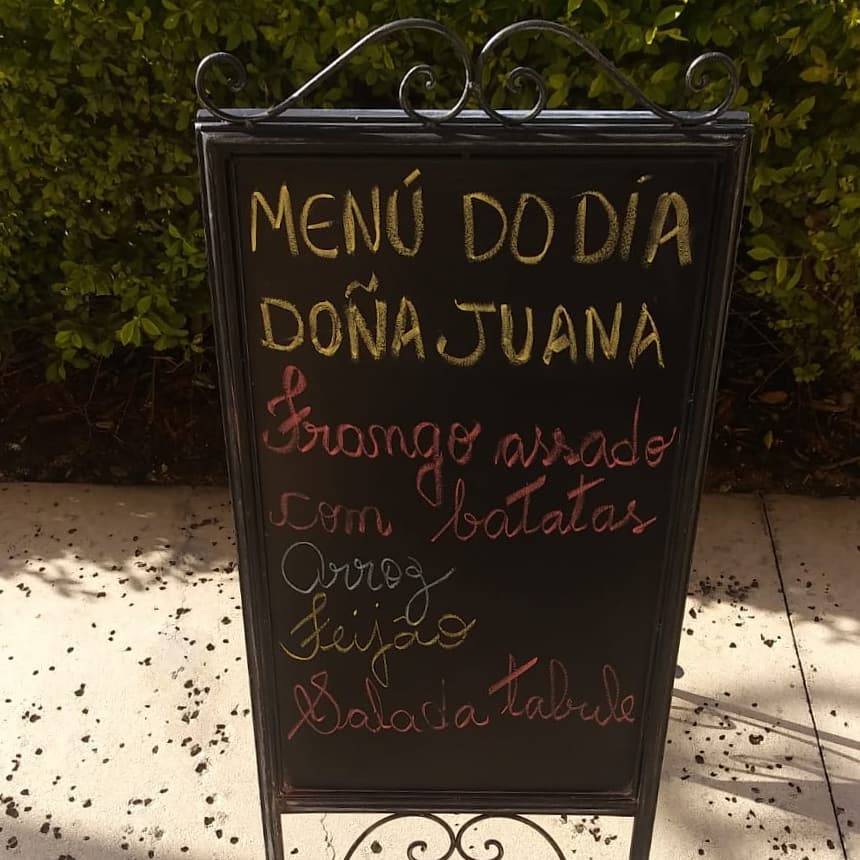 MENÚ DO DÍA
DOÑA JUANA
Frango assado
com batatas
Arroz
Feijão
Salada tabule